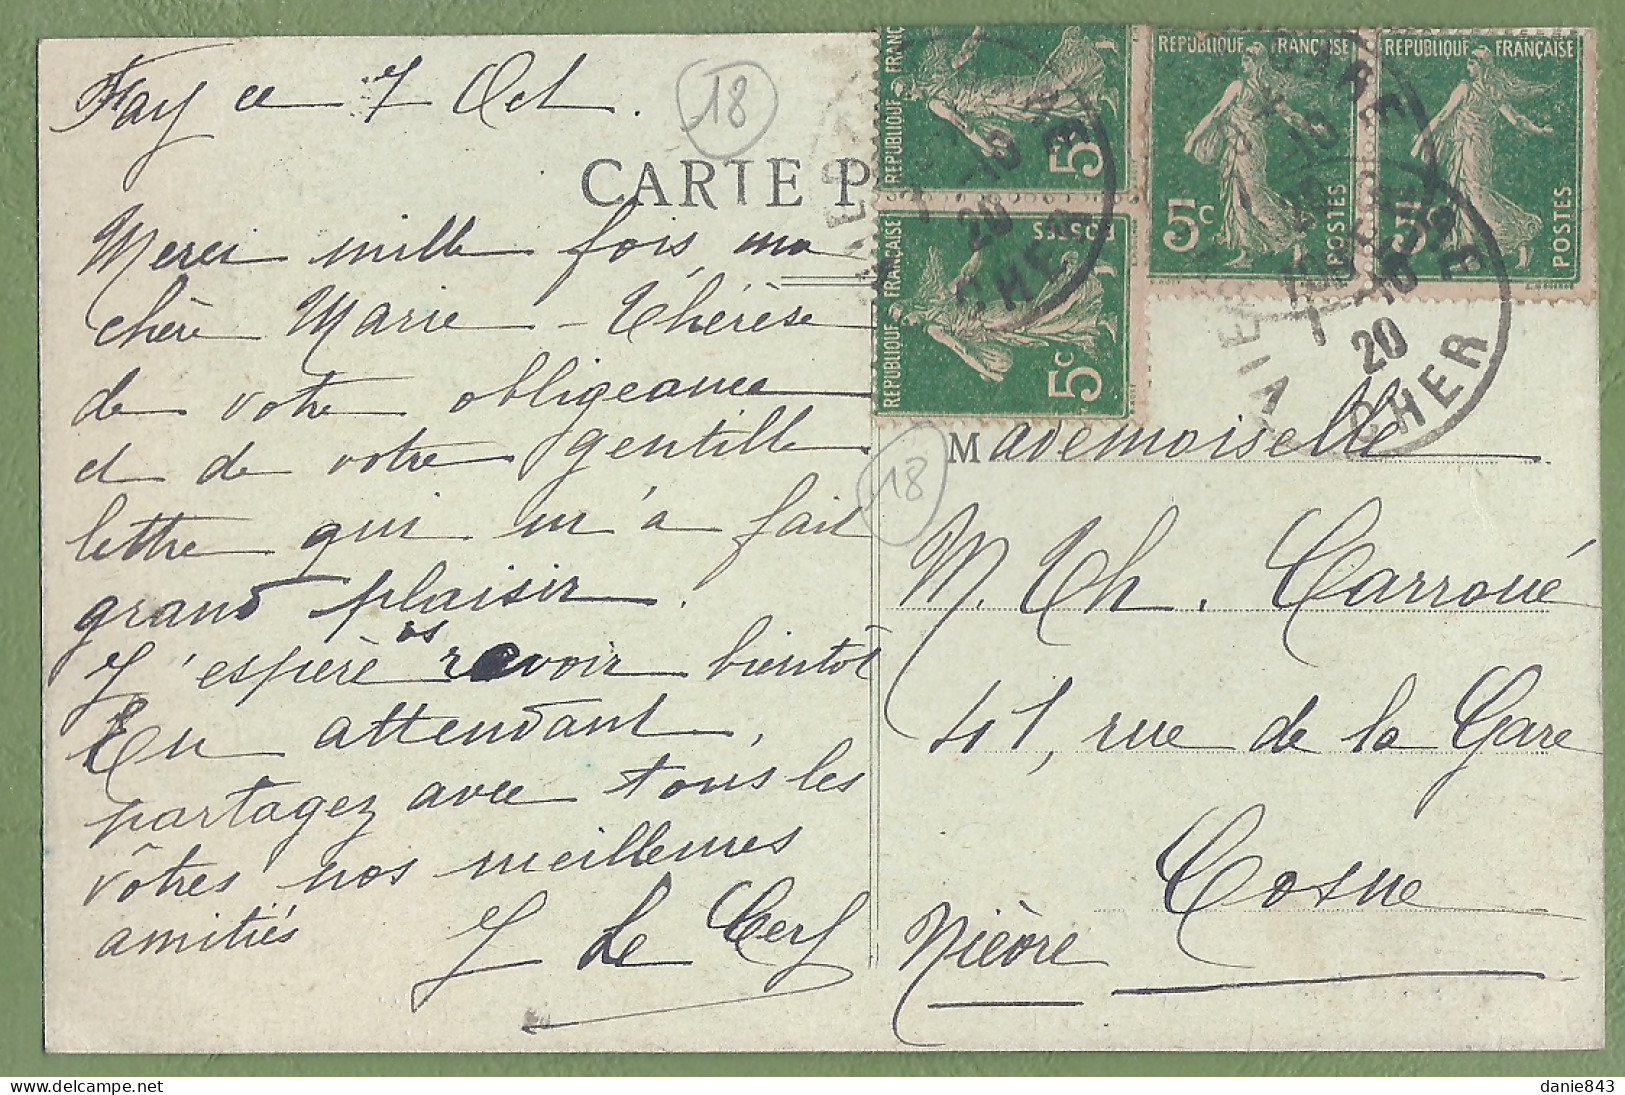 Fay ce 7 Oct.
18
CARTE P
Merci mille fois, ma
chère Marie-Thérèse
de votre obligeance
et de votre gentille
lettre qui m'a fait
grand plaisir.
J'espère vs revoir bientôt
En attendant,
partagez avec tous les
vôtres nos meilleures
amitiés
J Le Cerf
REPUBLIQUE FRANC
5c
REPUBLIQUE FRANÇAISE
POSTES
5c
REPUBLIQUE FRANÇAISE
5c
POSTES
REPUBLIQUE FRANÇAISE
5c
POSTES
GARE
7 -10
20
CHER
18
Mademoiselle
M. Th. Carroué
41, rue de la Gare
Cosne
Nièvre
danie843